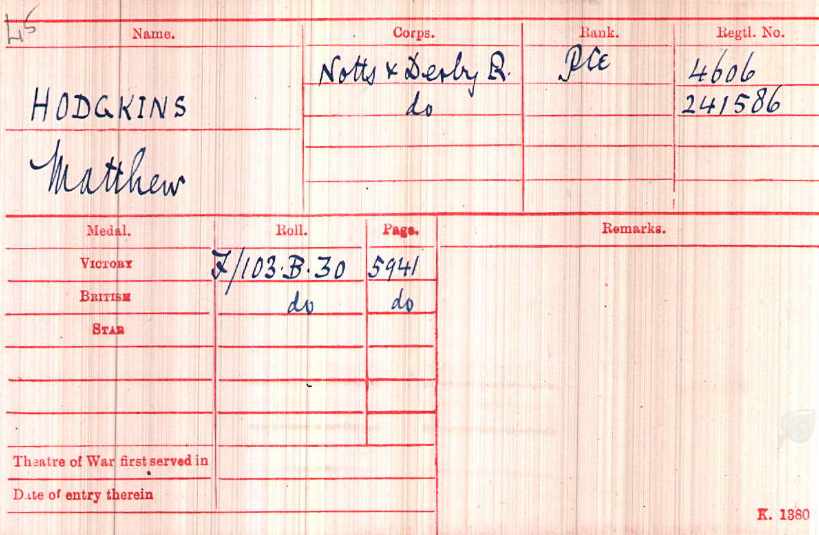 L5
Name. Corps. Rank. Regtl. No.
HODGKINS Notts & Derby R. Pte 4606
Matthew do 241586
Medal. Roll. Page. Remarks.
VICTORY F/103.B.30 5941
BRITISH do do
STAR
Theatre of War first served in
Date of entry therein
K. 1380